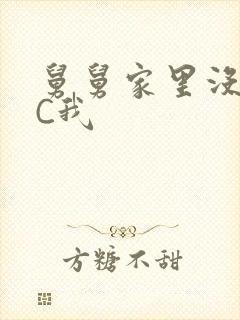 舅舅家里没
C我
方糖不甜